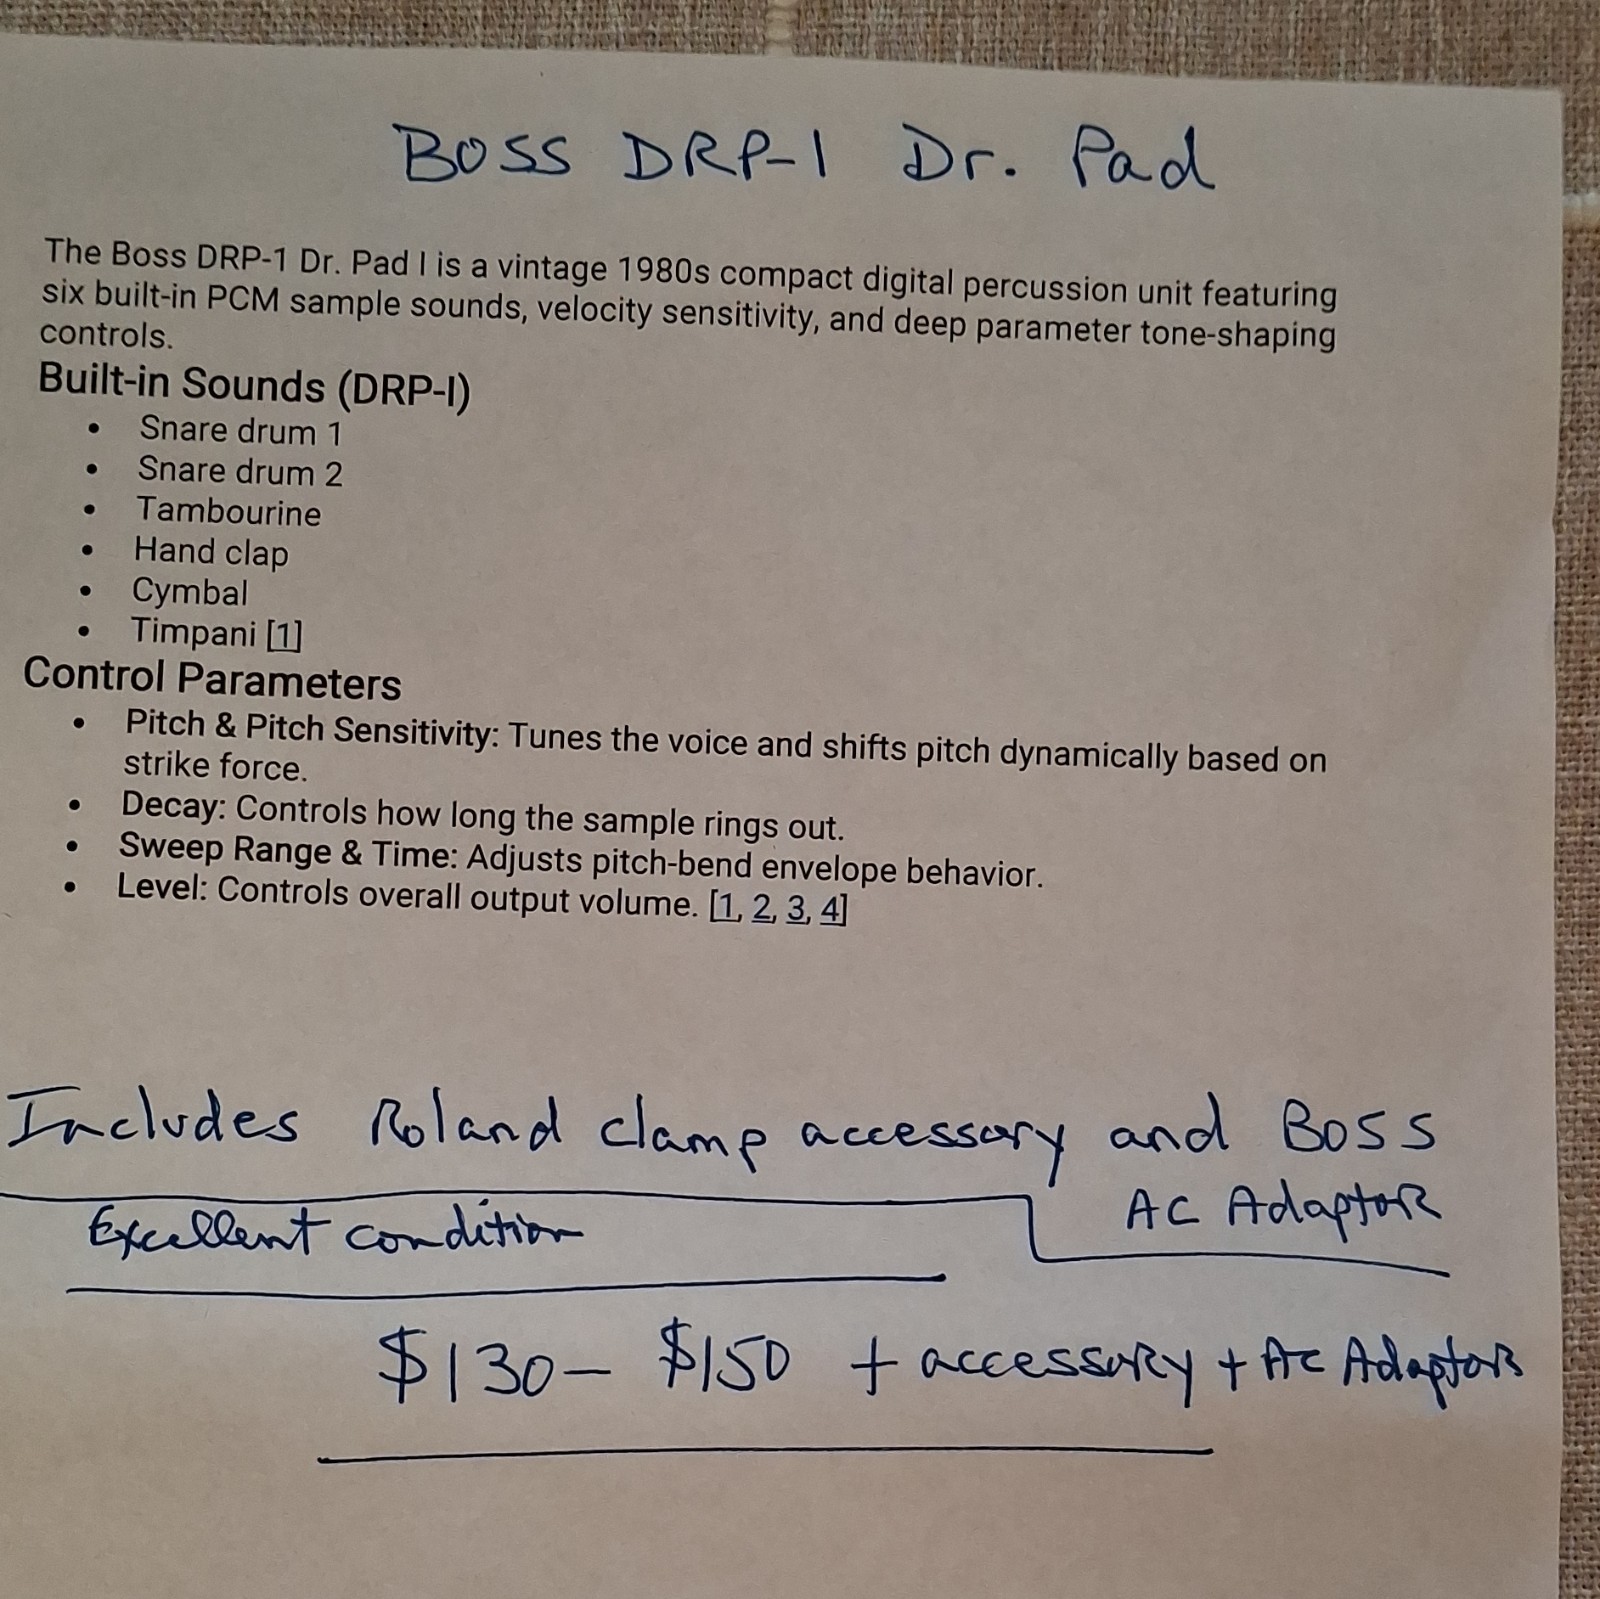 Boss DRP-1 Dr. Pad
The Boss DRP-1 Dr. Pad I is a vintage 1980s compact digital percussion unit featuring
six built-in PCM sample sounds, velocity sensitivity, and deep parameter tone-shaping
controls.
Built-in Sounds (DRP-I)
• Snare drum 1
• Snare drum 2
• Tambourine
• Hand clap
• Cymbal
• Timpani [1]
Control Parameters
• Pitch & Pitch Sensitivity: Tunes the voice and shifts pitch dynamically based on
strike force.
• Decay: Controls how long the sample rings out.
• Sweep Range & Time: Adjusts pitch-bend envelope behavior.
• Level: Controls overall output volume. [1, 2, 3, 4]
Includes Roland clamp accessory and Boss
AC Adaptor
Excellent condition
$130 – $150 + accessory + AC Adaptor